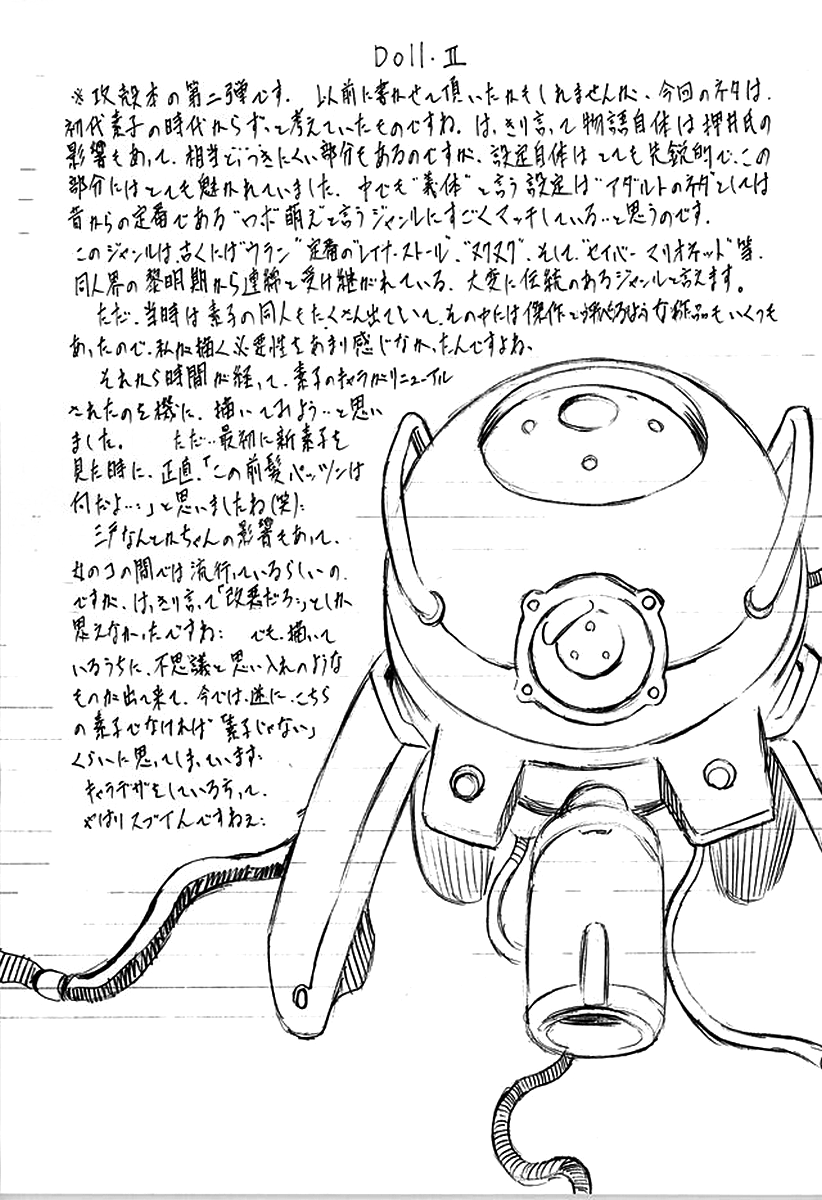 Doll・Ⅱ
※攻殻本の第二弾です。 以前に書かせて頂いたかもしれませんが、今回のネタは、
初代素子の時代からずっと考えていたものですね。はっきり言って物語自体は押井氏の
影響もあって、相当とっつきにくい部分もあるのですが、設定自体はとても先鋭的で、この
部分にはとても魅かれていました。中でも"義体"と言う設定は"アダルトのネタ"としては
昔からの定番である"ロボ萌え"と言うジャンルにすごくマッチしている…と思うのです。
このジャンルは、古くは"ウラン" 定番の"レイナ・ストール"、"ヌクヌク"、そして、"セイバーマリオネット"等、
同人界の黎明期から連綿と受け継がれている、大変に伝統のあるジャンルと言えます。
ただ、当時は素子の同人もたくさん出ていて、その中には傑作と呼べるような作品もいくつも
あったので、私が描く必要性をあまり感じなかったんですよね。
それから時間が経って、素子のキャラがリニューアル
されたのを機に、描いてみよう…と思い
ました。 ただ…最初に新素子を
見た時に、正直、「この前髪パッツンは
何だよ…」と思いましたね(笑)
三戸なんとかちゃんの影響もあって、
女のコの間では流行っているらしいの
ですが、はっきり言って「改悪だろ…」としか
思えなかったですね… でも、描いて
いるうちに、不思議と思い入れのような
ものが出て来て、今では、逆に、こちら
の素子でなければ「素子じゃない」
くらいに思ってしまっています…
キャラデザをしている方って、
やはりスゴイんですねぇ…